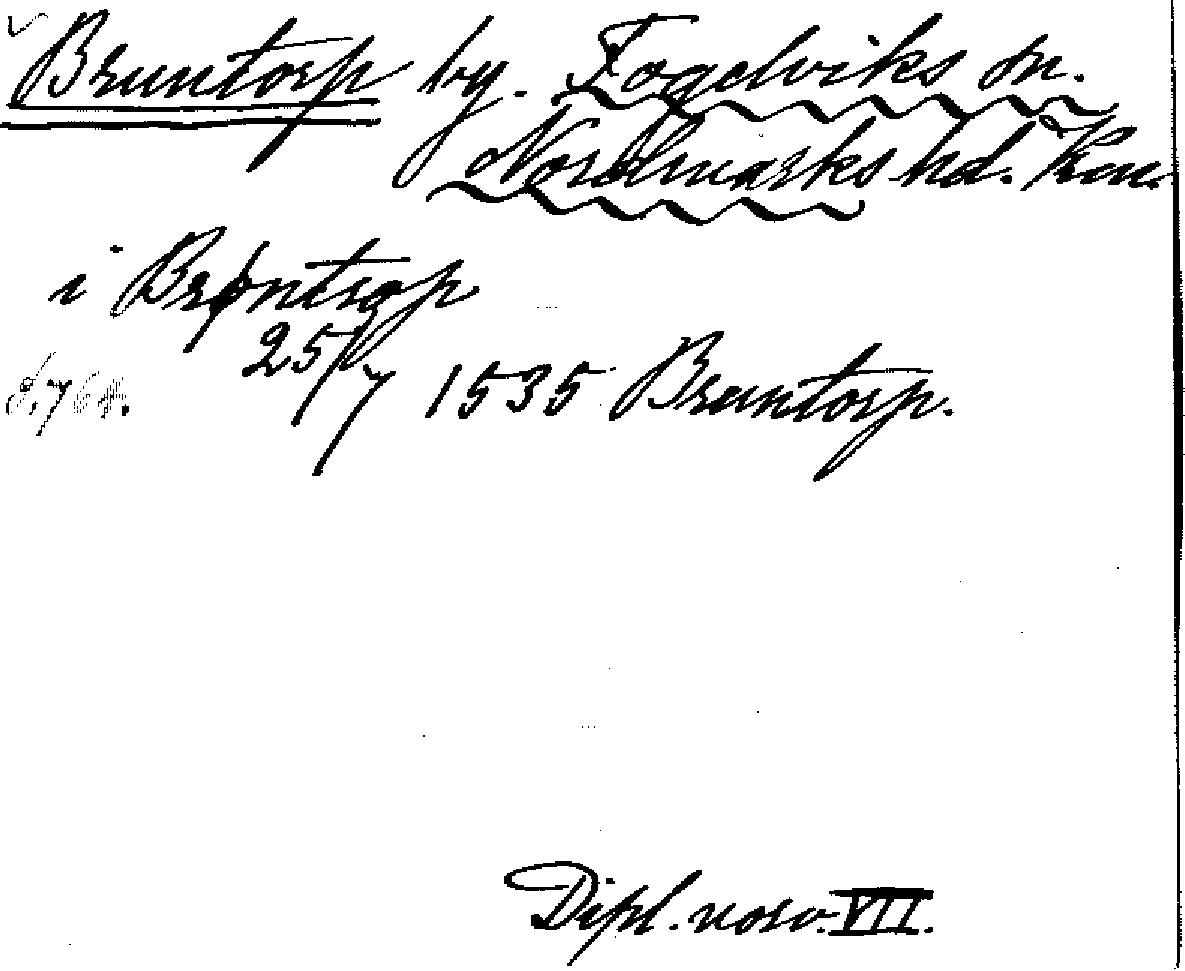 Bruntorp by. Fogelviks sn.
Nordmarks hd. Krn.
i Brøntrop
25/7 1535 Bruntorp.
s. 764.
Dipl. norv. VII.